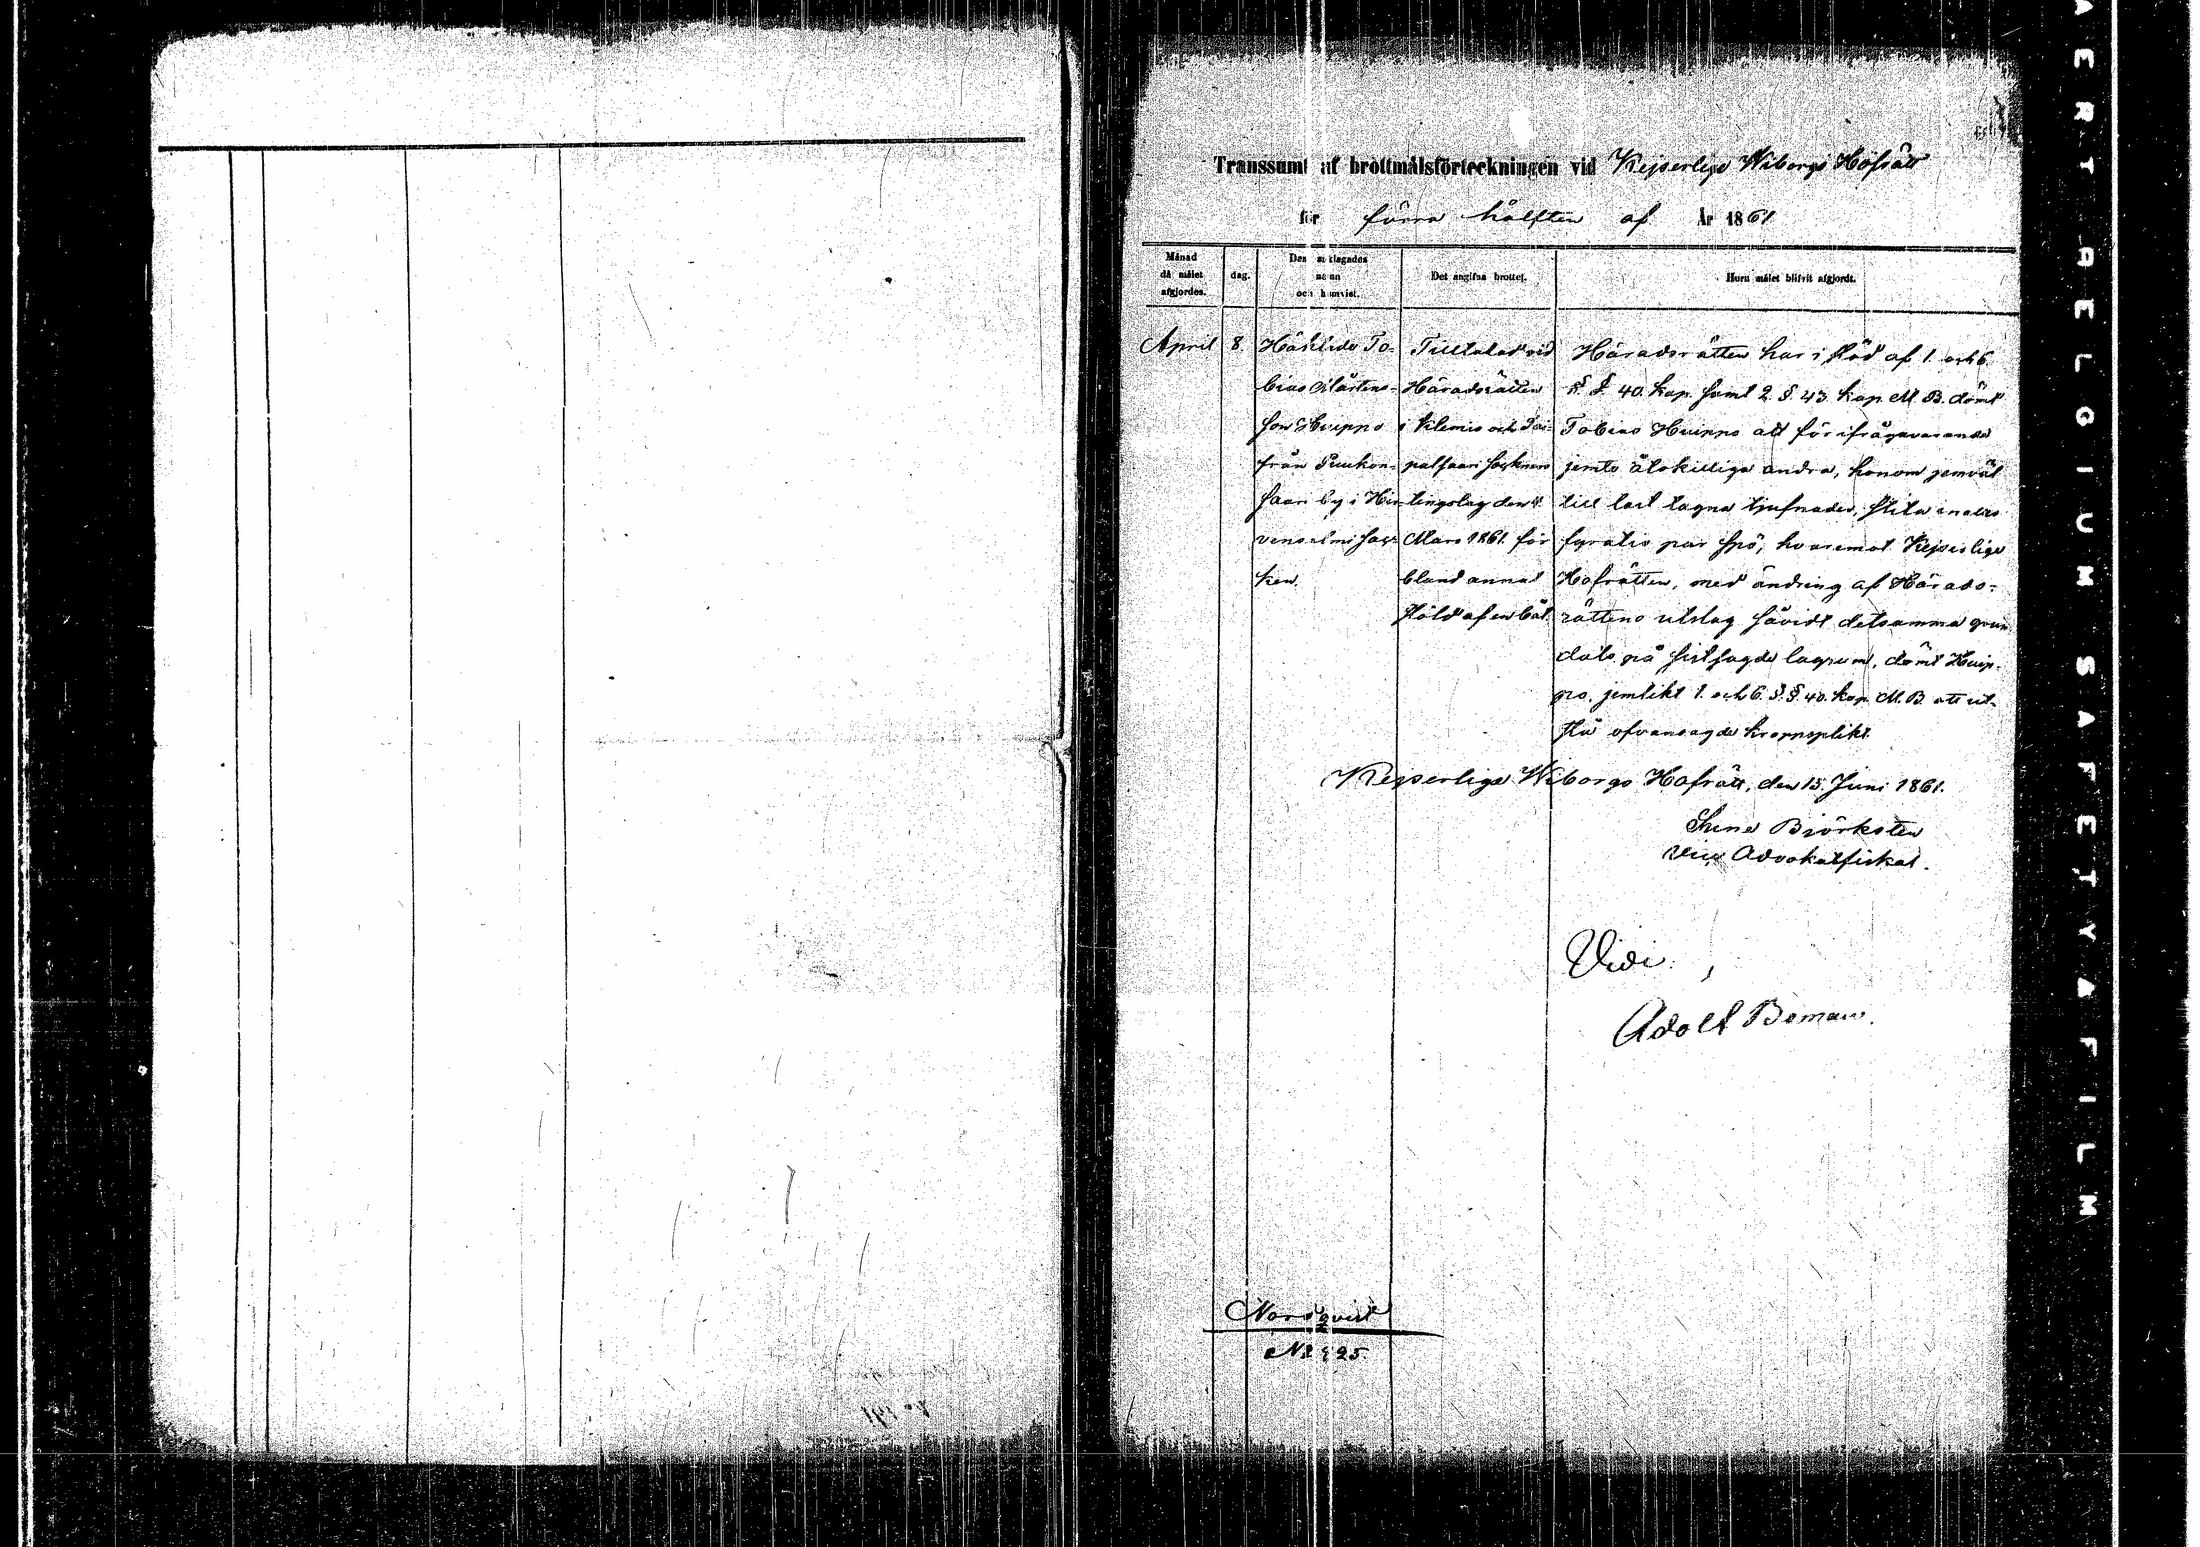 Transsumt af brottmålsförteckningen vid Kejserliga Wiborgs Hofrätt
för förra hälften af År 1861
Månad
då målet
afgjordes.
dag.
Den anklagades
namn
och hemvist.
Det angifna brottet.
Huru målet blifvit afgjordt.
April
8.
To-
bias Mårtens-
son Huippo
från Puukon-
saari by i Hir-
vensalmi Sock-
ken.
Tilltalad vid
Häradsrätten
i Klemis och Tai-
palsaari Socknars
tingslag den 4
Mars 1861 för
bland annat
stöld af en båt.
Häradsrätten har i stöd af 1. och 6.
§. §. 40. kap. samt 2. §. 43. kap. M. B. dömt
Tobias Huippo att för ifrågavarande
jemte åtskilliga andra, honom jemväl
till last lagna tjufnader, slita
fyratio par spö; hvaremot Kejserliga
Hofrätten, med ändring af Härads-
rättens utslag såvidt detsamma grun-
dats på sistsagda lagrum, dömt Huip-
po, jemlikt 1. och 6. §. §. 40. kap. M. B. att ut-
stå ofvansagda kroppsplikt.
Kejserliga Wiborgs Hofrätt, den 15. Juni 1861.
Björksten
Vice Advokatfiskal.
Vidi:
Adolf Boman.
Nordqvist
N:o 425.
AGFA AERT A BELGIUM SAFETY A FILM